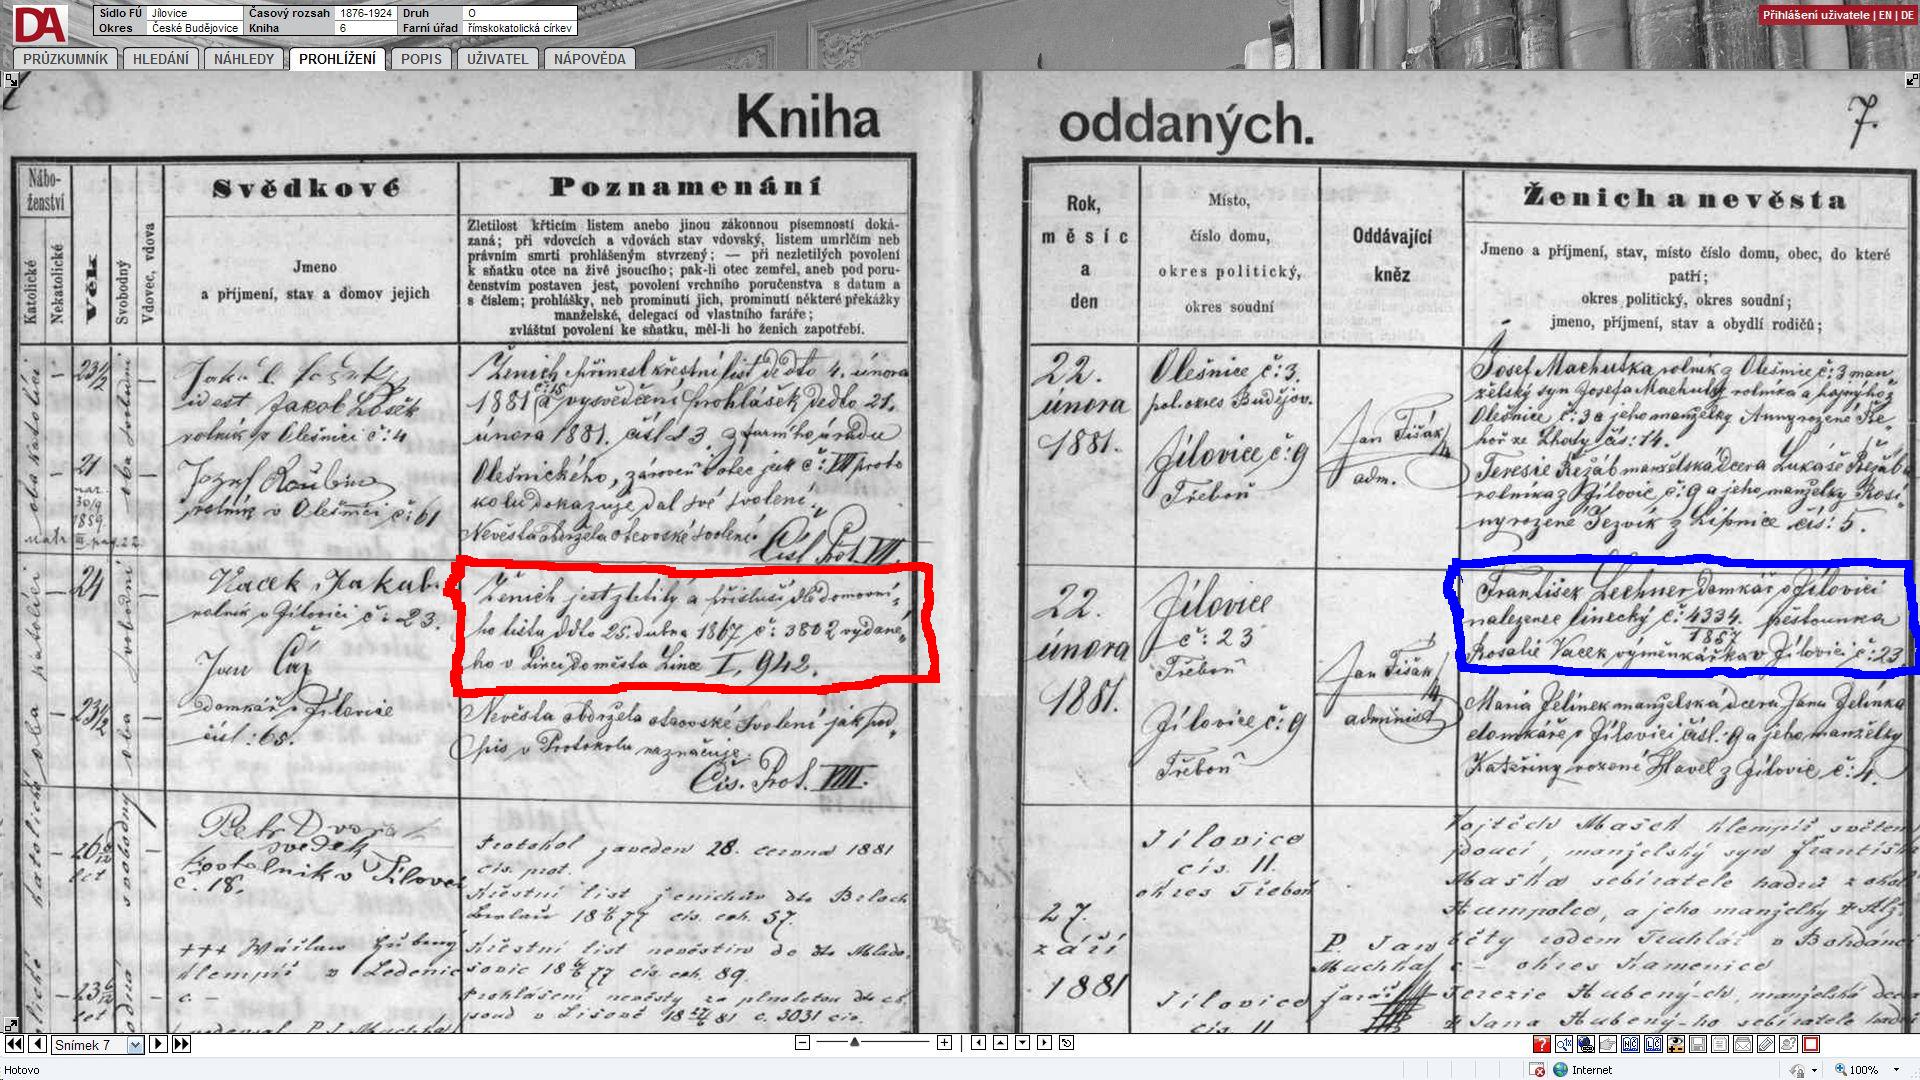 Sídlo FÚ Jílovice Časový rozsah 1876-1924 Druh O
Okres České Budějovice Kniha 6 Farní úřad římskokatolická církev
Přihlášení uživatele | EN | DE
PRŮZKUMNÍK HLEDÁNÍ NÁHLEDY PROHLÍŽENÍ POPIS UŽIVATEL NÁPOVĚDA
Kniha
Nábo-
ženství
Katolické
Nekatolické
Věk
Svobodný
Vdovec, vdova
Svědkové
Jmeno
a příjmení, stav a domov jejich
Poznamenání
Zletilost křticím listem anebo jinou zákonnou písemností doká-
zaná; při vdovcích a vdovách stav vdovský, listem umrlčím neb
právním smrti prohlášeným stvrzený; — při nezletilých povolení
k sňatku otce na živě jsoucího; pak-li otec zemřel, aneb pod poru-
čenstvím postaven jest, povolení vrchního poručenstva s datum a
s číslem; prohlášky, neb prominutí jich, prominutí některé překážky
manželské, delegací od vlastního faráře;
zvláštní povolení ke sňatku, měl-li ho ženich zapotřebí.
23 1/2
id est Jakob
rolník z Olešnici č: 4
21
Jozef
rolník v Olešnici č: 61
Ženich přinesl křestní list de dto 4. února
1881 a vysvědčení prohlášek de dto 21.
února 1881. čísl 23, z farního úřadu
Olešnického, zároveň otec jak č: VII proto
kolu dokazuje dal své svolení.
Nevěsta obdržela otcovské svolení.
Čísl. Prot. VII.
24
Vacek Jakub.
rolník v Jílovici č: 23.
Jan
domkář z Jílovice
čísl: 65.
23 1/2
Ženich jest zletilý a přísluší dle domovní-
ho listu ddto 25. dubna 1867 č: 3802 vydané-
ho v Linci do města Lince I, 942.
Nevěsta obdržela otcovské svolení jak po-
pis v Protokolu naznačuje.
Čís. Prot. VIII.
Petr Dvořa
svědek
v Jílovici
č. 18.
Protokol zaveden 28. června 1881
čís. prot.
Křestní list
57.
+++ Václav
klempíř v Ledenic
Křestní list nevěstin
čís. 89.
Prohlášení nevěsty za plnoletou
oddaných.
7.
Rok,
měsíc
a
den
Místo,
číslo domu,
okres politický,
okres soudní
Oddávající
kněz
Ženich a nevěsta
Jmeno a příjmení, stav, místo číslo domu, obec, do které
patří;
okres politický, okres soudní;
jmeno, příjmení, stav a obydlí rodičů;
22.
února
1881.
Olešnice č: 3.
pol. okres Budějov.
Jílovice č: 9
Třeboň
Jan Tišák
adm.
Josef Machutka rolník z Olešnice č: 3 man-
želský syn Josefa Machutky rolníka a hajného z
Olešnice č: 3 a jeho manželky Anny rozené Ře-
hoř ze Lhoty čís: 14.
Teresie Řežáb manželská dcera Lukáše Řežába
rolníka z Jílovic č: 9 a jeho manželky Rosi
ny rozené Jezvík z Lipnice čís: 5.
22.
února
1881.
Jílovice
č: 23
Třeboň
Jílovice č: 9
Třeboň
Jan Tišák
administ
František Lechner domkář v Jílovici
nalezenec linecký č: 4334/1857 pěstounka
Rosalie Vacek výměnkářka v Jílovici č: 23
Maria Jelínek manželská dcera Jana Jelínka
domkáře z Jílovici čísl. 9 a jeho manželky
Kateřiny rozené Havel z Jílovic č: 4.
27.
září
1881
Jílovice
čís. 11.
okres Třeboň
Jílovice
čís. 11
P. Jan
Machka
farář
Vojtěch Mašek klempíř světem
jdoucí, manželský syn Františka
Maška sebíratele hadrů z okolí
Humpolce, a jeho manželky Alž
běty rodem Truhlář v Bohdanči
č – okres Kamenice
Terezie Hubených, manželská dcera
Jana Hubený-ho sebíratele
Snímek 7
Hotovo
Internet
100%